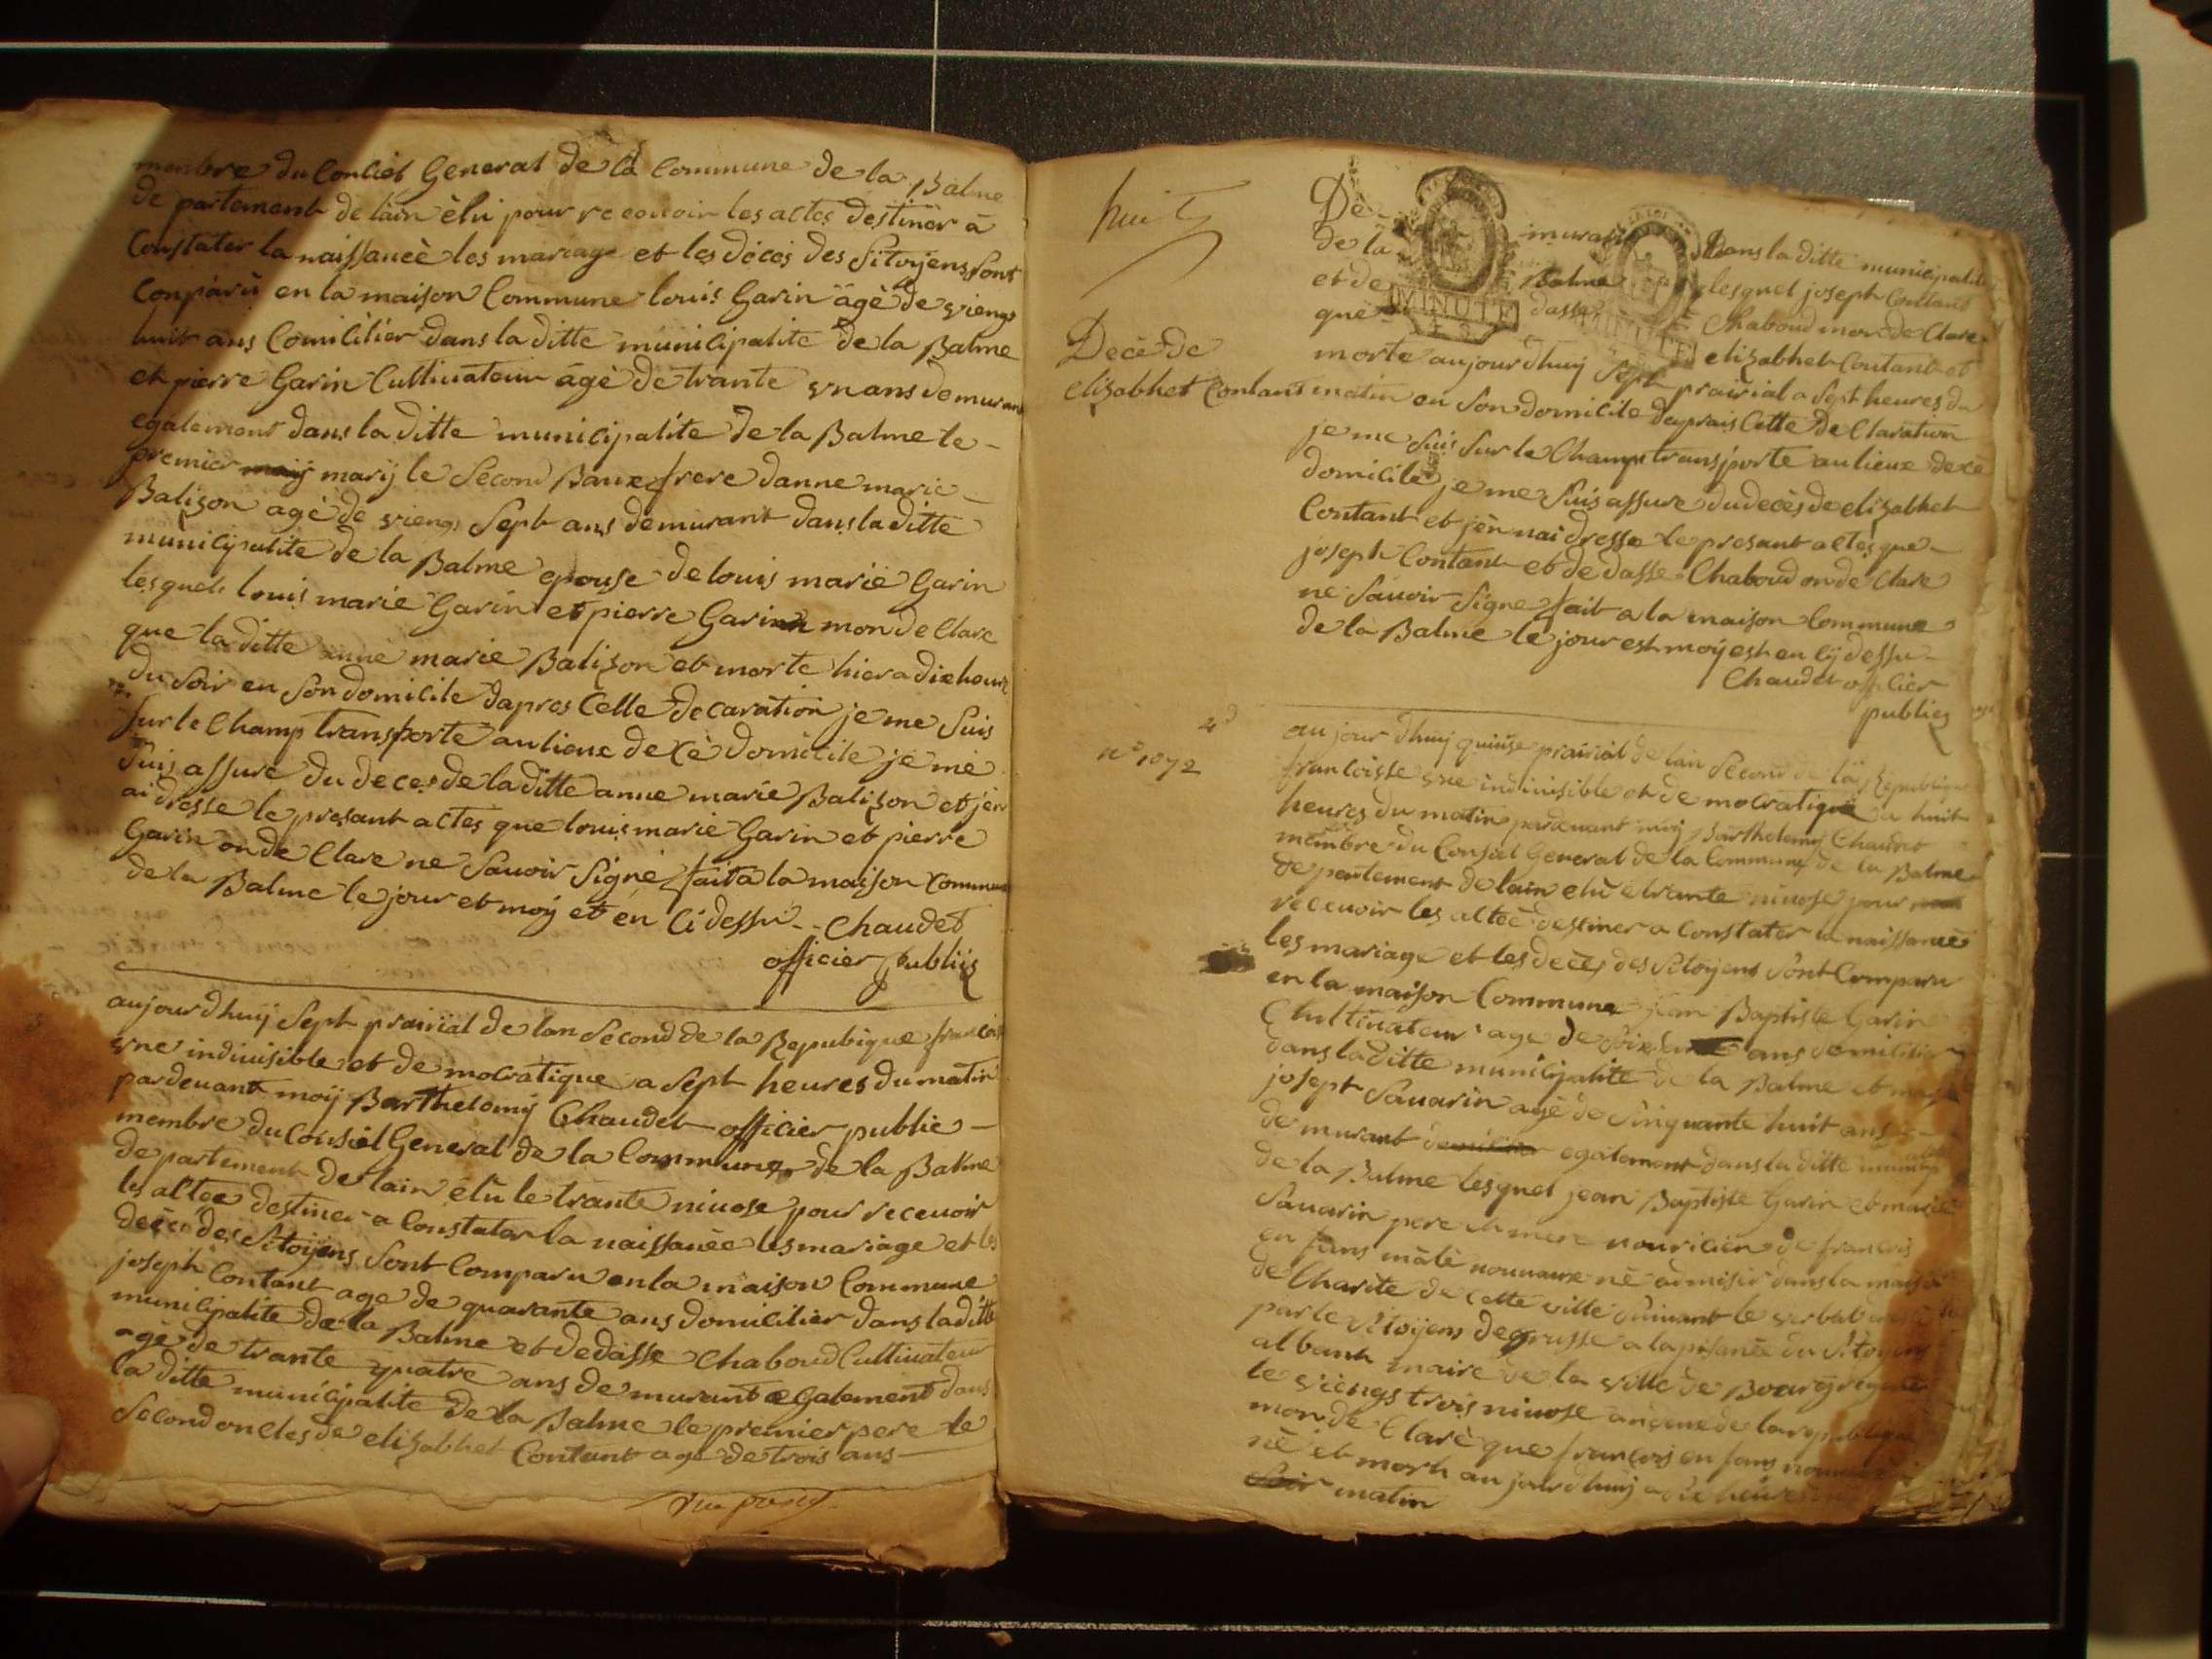 membre du Conciel General de la Commune de la Balme
de partement de lain élu pour recevoir les actes destiner à
Constater la naissancé les mariage et les décés des Sitoyens Sont
Conparu en la maison Commune louis Garin âgé de viengt
huit ans Comicilier dans la ditte municipalite de la Balme
et pierre Garin Cultivateur âgé de trante un ans demurant
egalement dans la ditte municipalite de la Balme le
premier marÿ le Second Baux frere danne marie
Balizon agé de viengt Sept ans demurant dans la ditte
municipalite de la Balme epouse de louis marie Garin
lesquels louis marie Garin et pierre Garin mon de Clare
que la ditte anne marie Balizon et morte hier a dix heure
du Soir en Son domicile dapres Cette decaration je me Suis
Sur le Champ transporte au lieux de cè domicile je me
Suis assure du deces de la ditte anne marie Balizon et jen
ai dresse le presant actes que louis marie Garin et pierre
Garin on de Clare ne Savoir Signé fait a la maison Commune
de la Balme le jour et moÿ et en Ci dessu - - Chaudet
officier publiq
aujourdhuÿ Sept prairial de lan Second de la Repubique francois
une indivisible et de mocratique a Sept heures du matin
pardevant moÿ Barthelomÿ Chaudet officier public
membre du Consiel General de la Commune de la Balme
de partement de lain élu le trante nivose pour recevoir
les altee destiner a Constater la naissance les mariage et les
decès des Sitoÿens Sont Comparu en la maison Commune
joseph Contant age de quarante ans domicilier dans la ditte
municipalite de la Balme et dedasse Chaboud Cultivateur
agé de trante quatre ans de murant egalement dans
la ditte municipalite de la Balme le premier pere le
Second oncles de elizabhet Contant age de trois ans
huit
De murant dans la ditte municipalite
de la Balme lesquel joseph Contant
et de dasse Chaboud mon de Clare
que elizabhet Contant et
Decè de
elizabhet Contant
morte aujourdhuÿ Sept prairial a Sept heures du
matin en Son domicile deprais Cette de Claration
je me Suis Sur le Champ transporte au lieux de cè
domicile je me Suis assure du decès de elizabhet
Contant et jèn nai dresse le presant actes que
joseph Contant et de dasse Chaboud on de Clare
ne Savoir Signe fait a la maison Commune
de la Balme le jour est moÿ est en cÿ dessu
Chaudet officier
publicq
n° 1072
aujourdhuÿ quinse prairial de lan Second de la Republique
francoisse une indivisible et de mocratique a huit
heures du matin pardevant moÿ Barthelomÿ Chaudet
membre du Consiel General de la Commune de la Balme
de partement de lain elu le trante nivose pour
recevoir les altee destiner a Constater la naissance
les mariage et les decès des Sitoÿens Sont Comparu
en la maison Commune jean Baptiste Garin
Chultivateur age de ans domicilier
dans la ditte municipalite de la Balme et marie
josept Savarin agé de Sinquante huit ans
de murant egalement dans la ditte municipalite
de la Balme lesquel jean Baptiste Garin et marie
Savarin pere et mere nouricier de francois
en fans mâle nouvaux né admisir dans la maison
de Charite de cette ville Suivant le verbal dresse
par le Sitoÿens degrusse a la prisance du Sitoyens
alban maire de la ville de Bourg
le viengt trois nivose an deux de la republique
mon de Clarè que francois en fans nouveaux
né et mort au jourdhuÿ a dix heure
matin